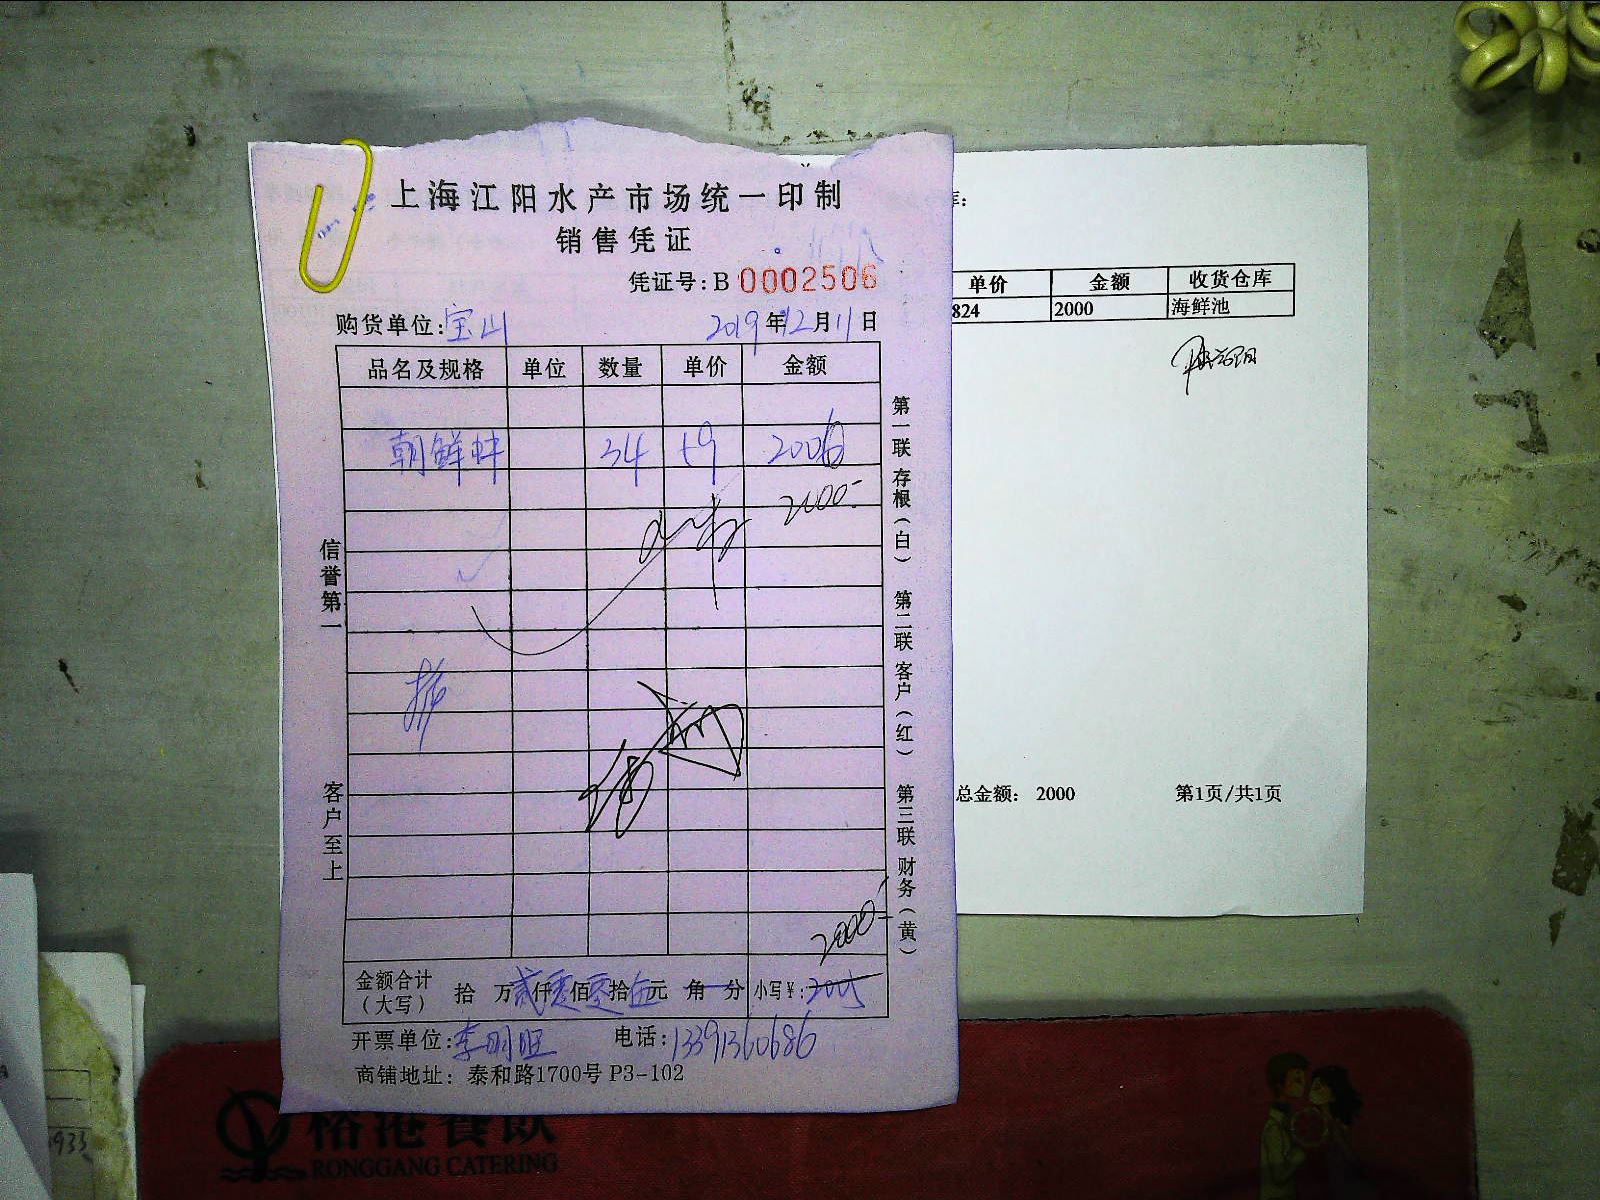 上海江阳水产市场统一印制
销售凭证
凭证号:B 0002506
购货单位:宝山 2019年12月11日
品名及规格 单位 数量 单价 金额
朝鲜蚌 34 59 2006
2000-
信誉第一
客户至上
第一联存根(白) 第二联客户(红) 第三联财务(黄)
2000-
金额合计(大写) 拾万贰仟零佰零拾伍元角分 小写¥:2005
开票单位:李明旺 电话:13391360686
商铺地址: 泰和路1700号 P3-102
库:
单价 金额 收货仓库
824 2000 海鲜池
总金额: 2000 第1页/共1页
裕港餐饮
RONGGANG CATERING
935